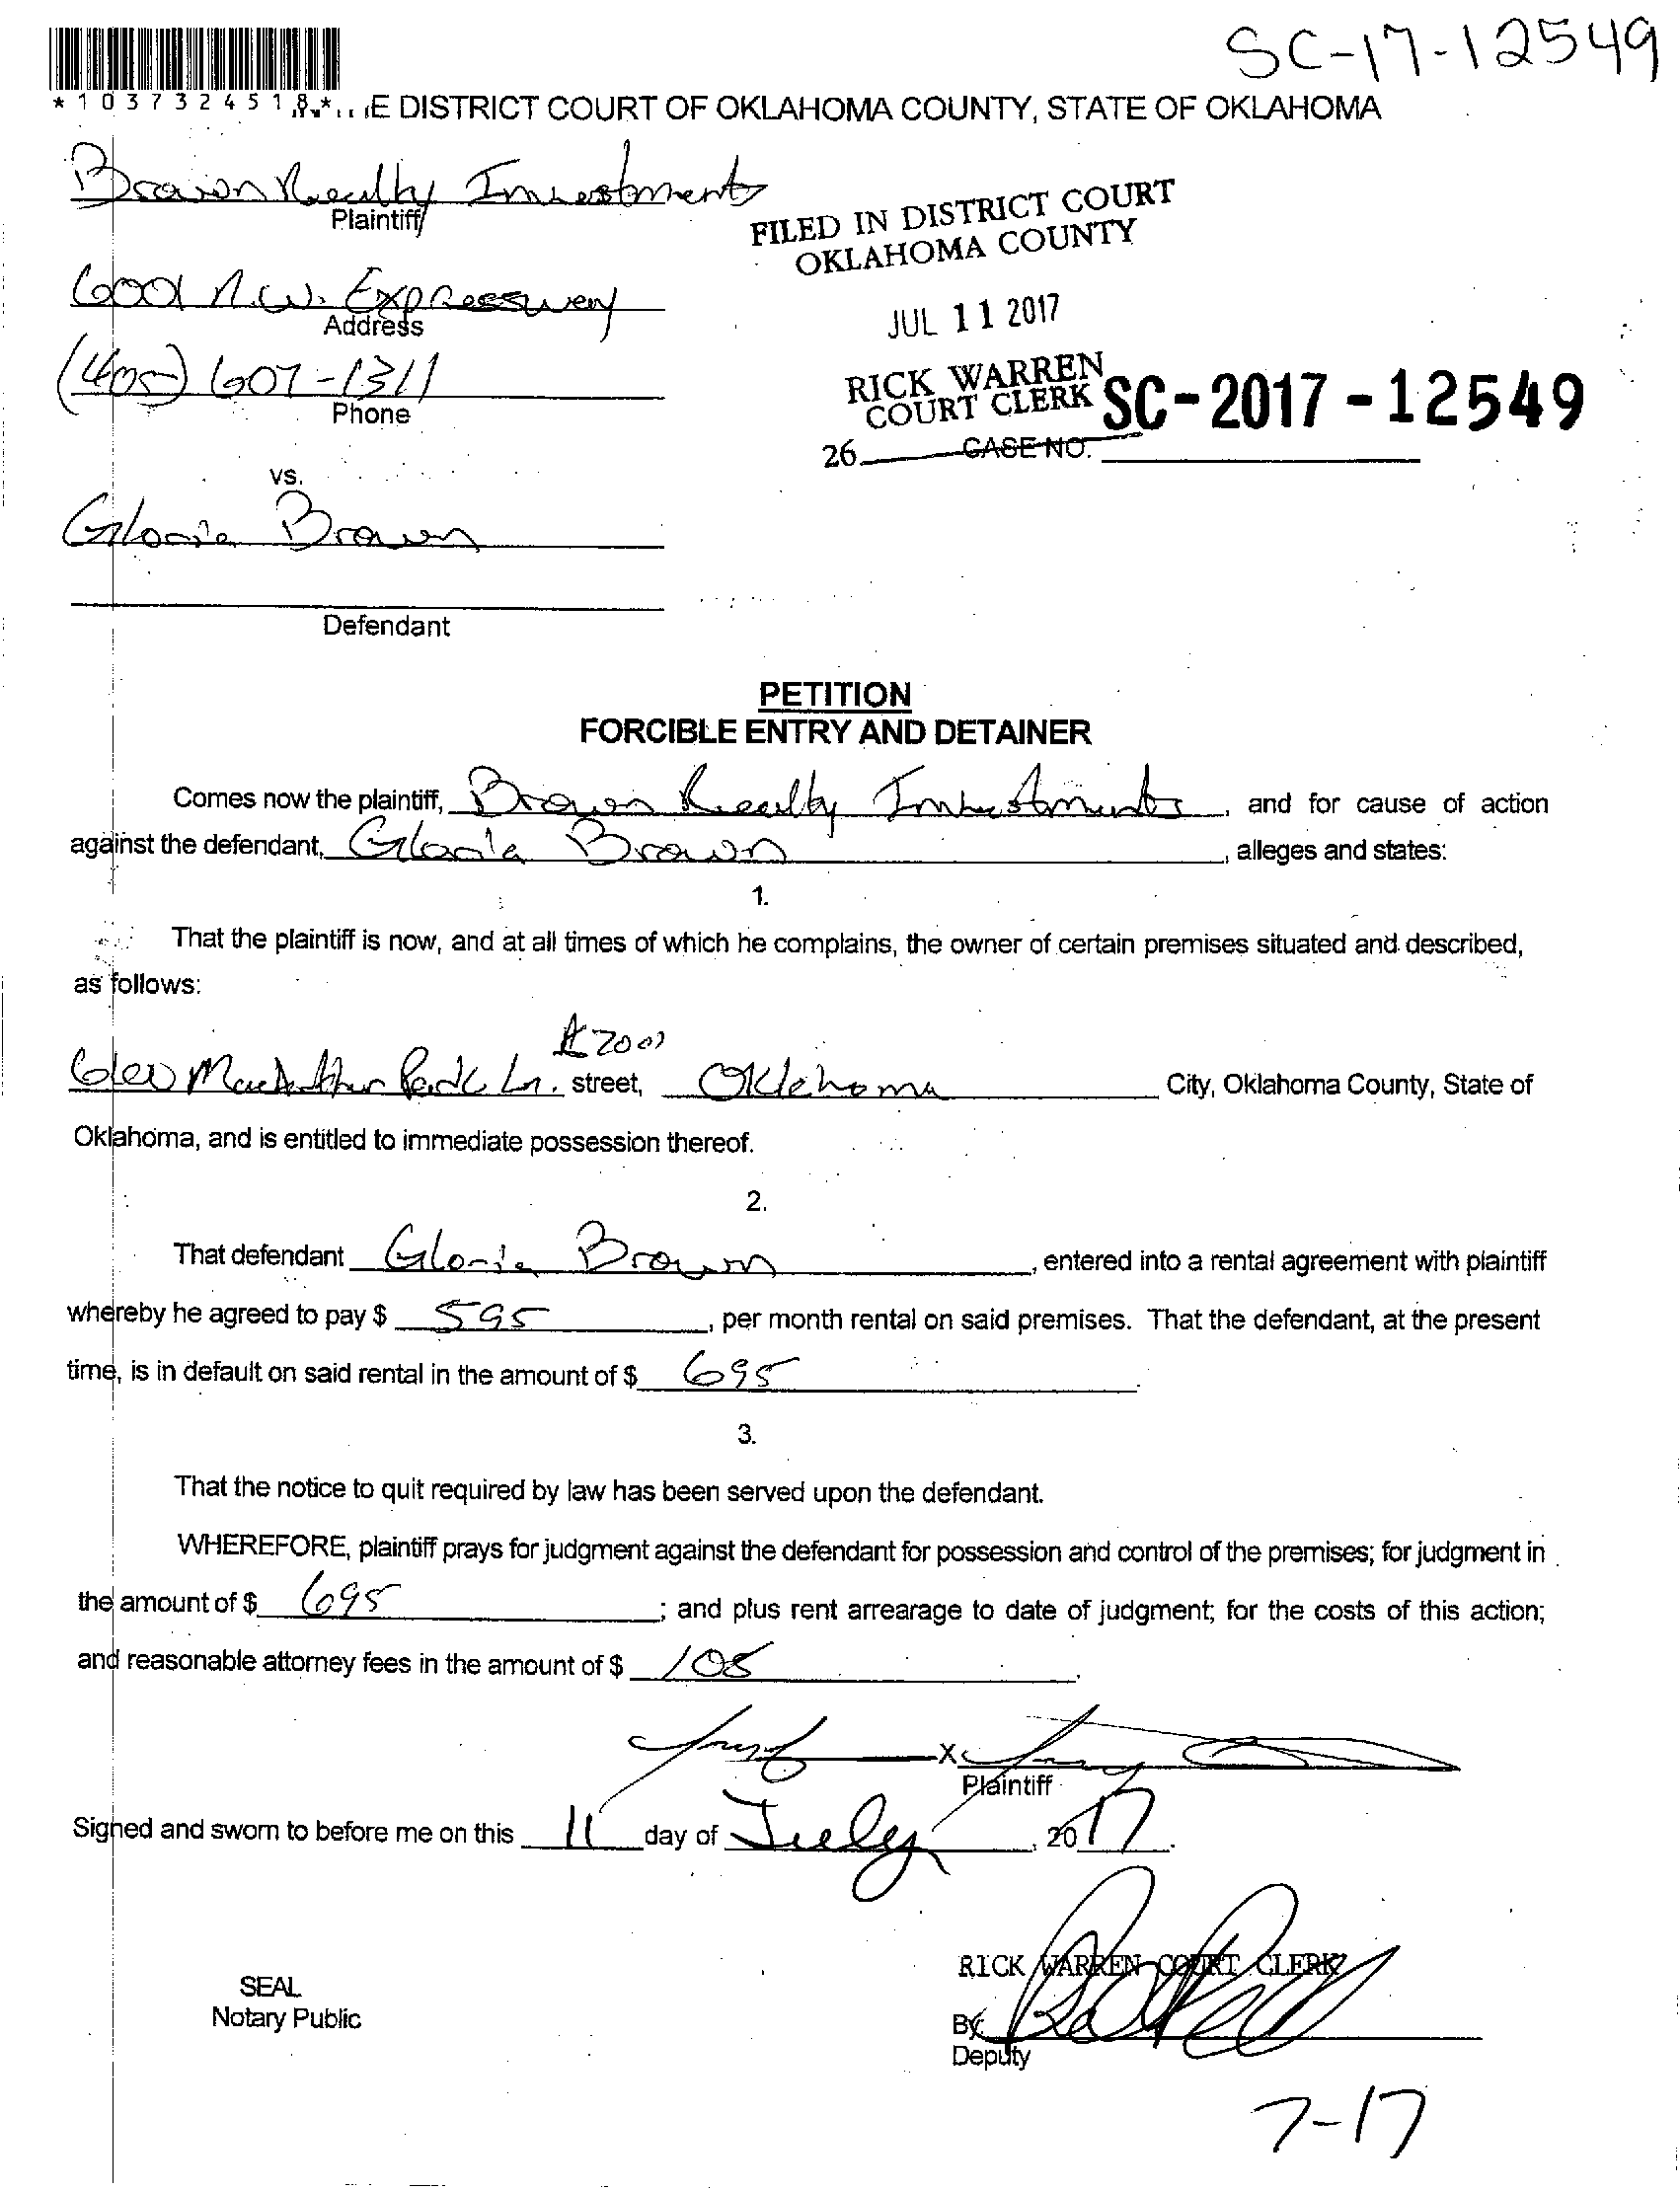 SC-17-12549
*1037324518*
E DISTRICT COURT OF OKLAHOMA COUNTY, STATE OF OKLAHOMA
Brown Realty Investments
Plaintiff
FILED IN DISTRICT COURT
OKLAHOMA COUNTY
6001 N.W. Expressway
Address
JUL 11 2017
(405) 607-1311
Phone
RICK WARREN
COURT CLERK
SC-2017-12549
26 CASE NO.
vs.
Gloria Brown
Defendant
PETITION
FORCIBLE ENTRY AND DETAINER
Comes now the plaintiff, Brown Realty Investments, and for cause of action
against the defendant, Gloria Brown, alleges and states:
1.
That the plaintiff is now, and at all times of which he complains, the owner of certain premises situated and described,
as follows:
MacArthur Park Ln. street, Oklahoma City, Oklahoma County, State of
Oklahoma, and is entitled to immediate possession thereof.
2.
That defendant Gloria Brown, entered into a rental agreement with plaintiff
whereby he agreed to pay $ 595, per month rental on said premises. That the defendant, at the present
time, is in default on said rental in the amount of $ 695.
3.
That the notice to quit required by law has been served upon the defendant.
WHEREFORE, plaintiff prays for judgment against the defendant for possession and control of the premises; for judgment in
the amount of $ 695; and plus rent arrearage to date of judgment; for the costs of this action;
and reasonable attorney fees in the amount of $ 108.
X
Plaintiff
Signed and sworn to before me on this 11 day of July, 2017.
RICK WARREN COURT CLERK
SEAL
Notary Public
By:
Deputy
7-17